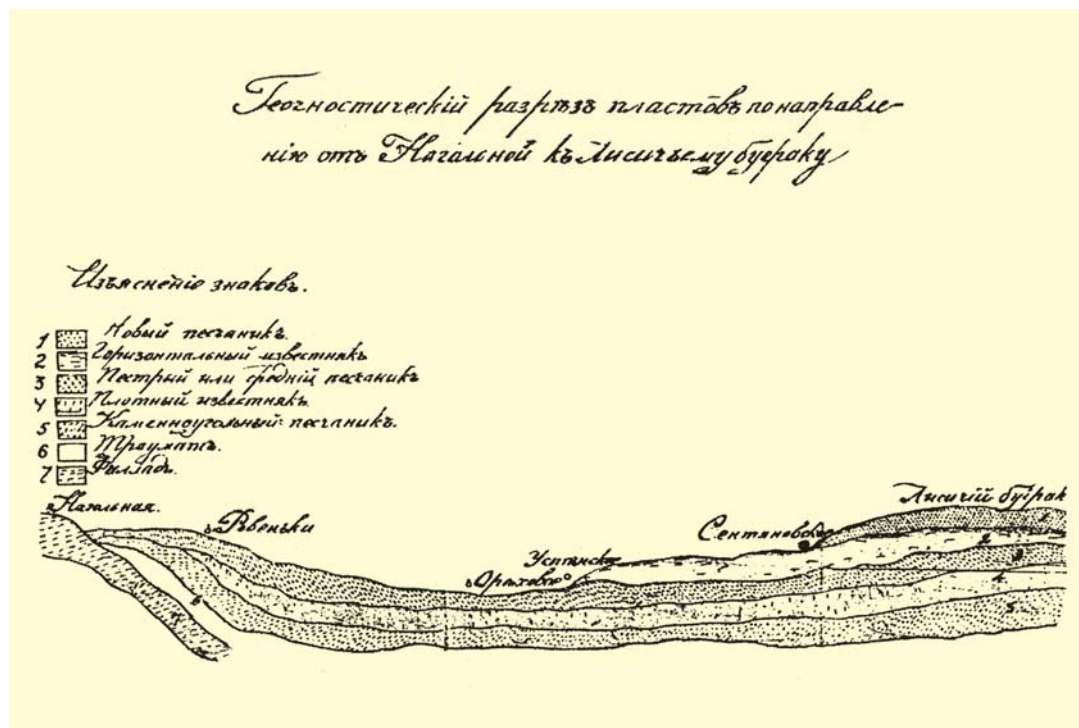 Геогностическій разрѣзъ пластовъ по направле-
нію отъ Нагольной къ Лисичьему буераку
Изъясненіе знаковъ.
1 Новый песчаникъ.
2 Горизонтальный известнякъ
3 Пестрый или средній песчаникъ
4 Плотный известнякъ.
5 Каменноугольный песчаникъ.
6 Трауматъ.
7 Филладъ.
Нагольная.
Ровеньки
Орѣхово
Успенск
Сентяновка
Лисичій буерак
1
2
3
4
5
6